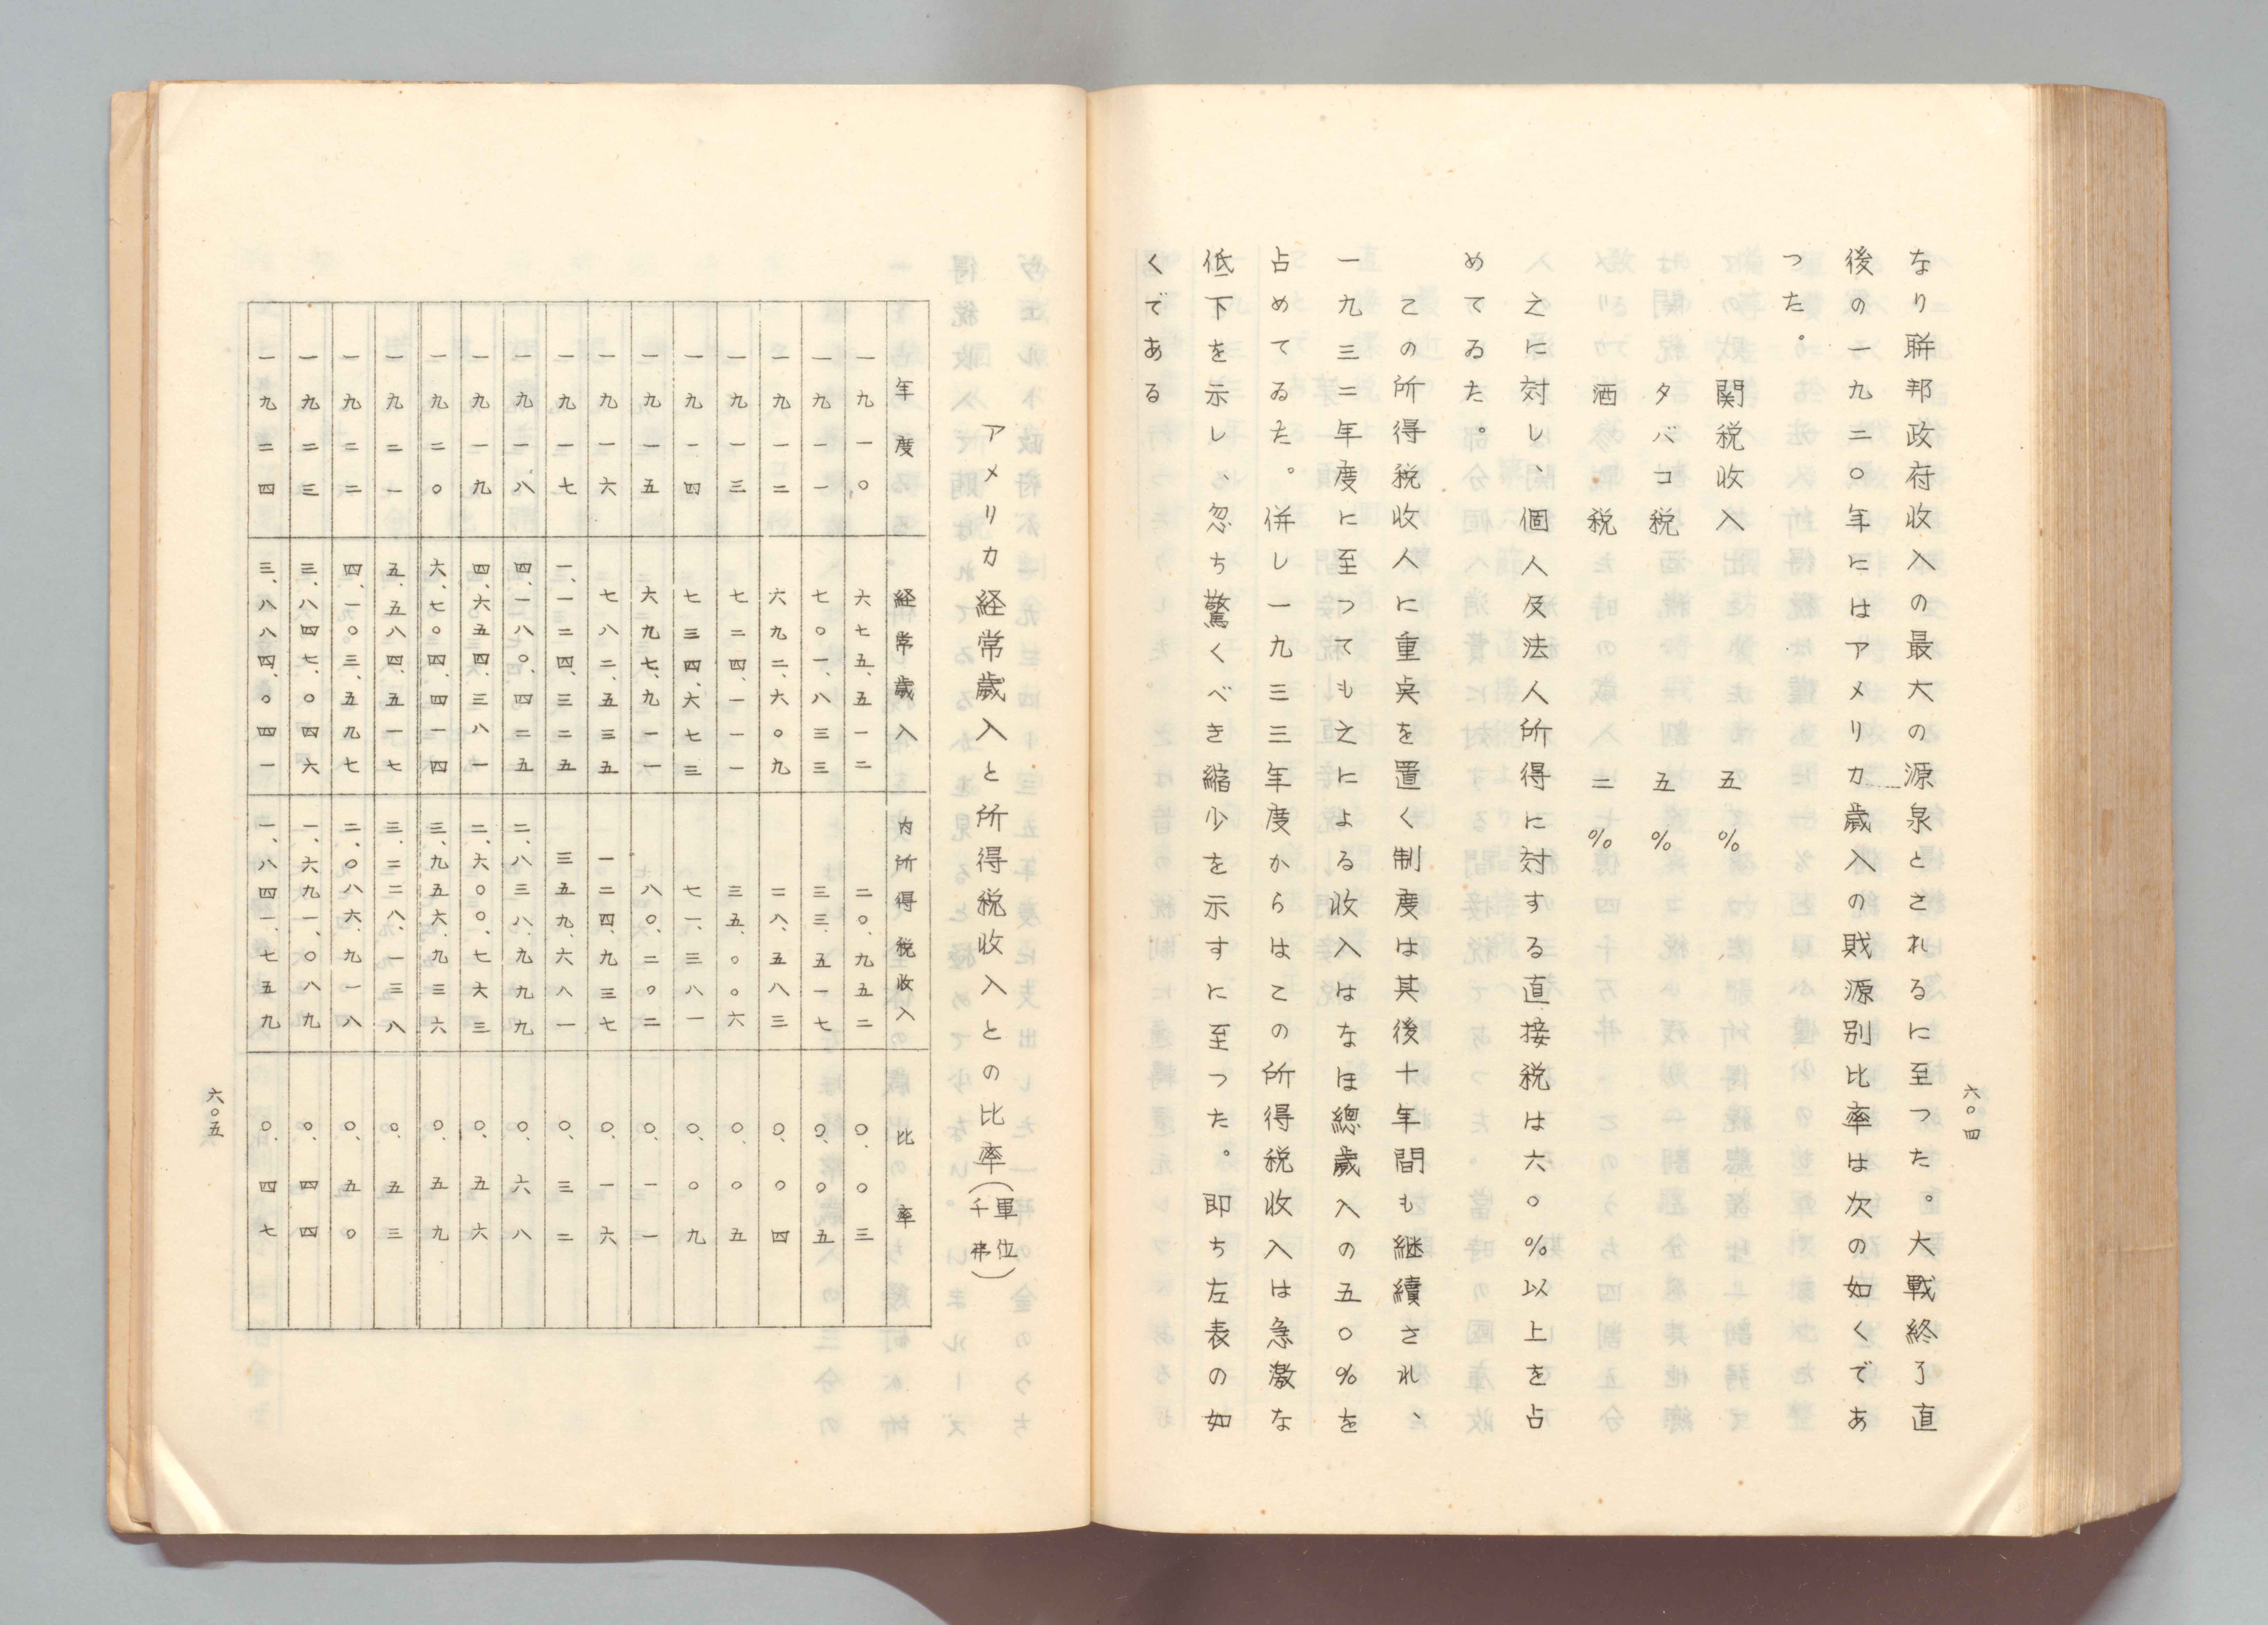 六〇四
なり聯邦政府収入の最大の源泉とされるに至つた。大戦終了直
後の一九二〇年にはアメリカ歳入の財源別比率は次の如くであ
つた。
関税収入 五%
タバコ税 五%
酒税 二%
之に対し、個人及法人所得に対する直接税は六〇%以上を占
めてゐた。
この所得税収入に重点を置く制度は其後十年間も継續され、
一九三二年度に至つても之による収入はなほ總歳入の五〇%を
占めてゐた。併し一九三三年度からはこの所得税収入は急激な
低下を示し、忽ち驚くべき縮少を示すに至つた。即ち左表の如
くである
アメリカ経常歳入と所得税収入との比率(單位千弗)
年度 経常歳入 内所得税収入 比率
一九一〇 六七五、五一二 二〇、九五二 〇、〇三
一九一一 七〇一、八三三 三三、五一七 〇、〇五
一九一二 六九二、六〇九 二八、五八三 〇、〇四
一九一三 七二四、一一一 三五、〇〇六 〇、〇五
一九一四 七三四、六七三 七一、三八一 〇、〇九
一九一五 六九七、九一一 八〇、二〇二 〇、一一
一九一六 七八二、五三五 一二四、九三七 〇、一六
一九一七 一、一二四、三二五 三五九、六八一 〇、三二
一九一八 四、一八〇、四二五 二、八三八、九九九 〇、六八
一九一九 四、六五四、三八一 二、六〇〇、七六三 〇、五六
一九二〇 六、七〇四、四一四 三、九五六、九三六 〇、五九
一九二一 五、五八四、五一七 三、二二八、一三八 〇、五三
一九二二 四、一〇三、五九七 二、〇八六、九一八 〇、五〇
一九二三 三、八四七、〇四六 一、六九一、〇八九 〇、四四
一九二四 三、八八四、〇四一 一、八四一、七五九 〇、四七
六〇五